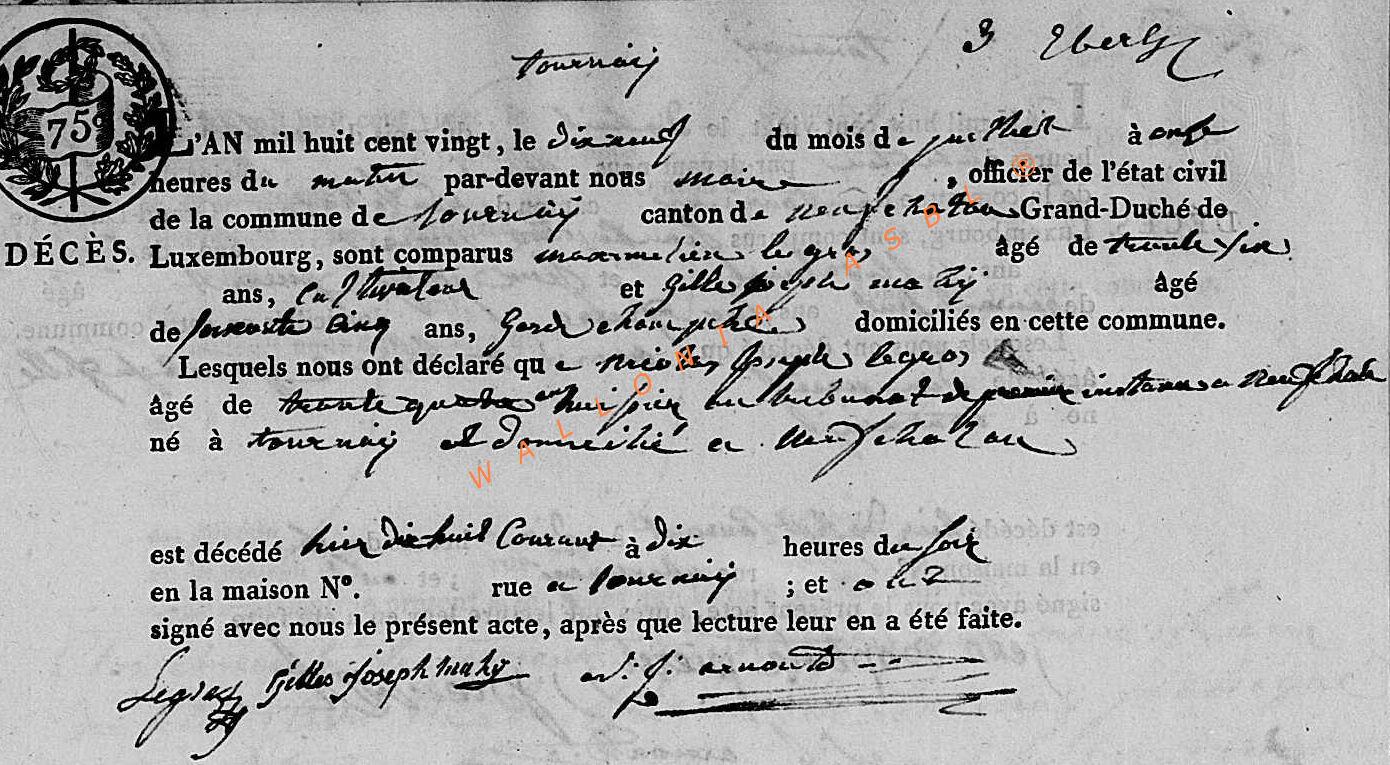 tournay
3
75c
L'AN mil huit cent vingt, le dix neuf du mois de juillet à onze
heures du matin par-devant nous maire, officier de l'état civil
de la commune de tournay canton de neufchateau Grand-Duché de
DÉCÈS. Luxembourg, sont comparus maxmelien legros âgé de trente six
ans, Cultivateur et gille joseph mahy âgé
de soixante Cinq ans, Garde champetre domiciliés en cette commune.
Lesquels nous ont déclaré que nicolas Joseph legros
âgé de trente quatre huissier au tribunal de premier instance a neufchate
né à tournay et domicilié a neufchateau
est décédé hier dix huit Courant à dix heures du soir
en la maison No. rue a tournay ; et
signé avec nous le présent acte, après que lecture leur en a été faite.
Legros Gilles Joseph mahy arnould
WALLONIA ASBL ©